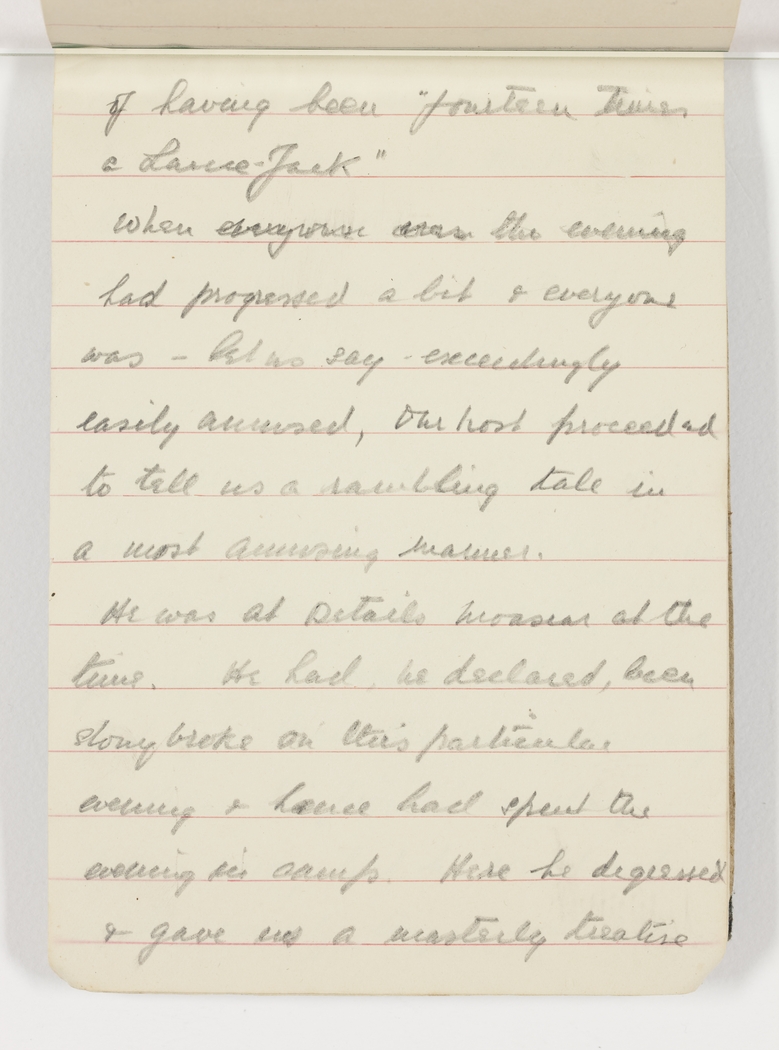 of having been "fourteen times
a Lance-Jack"
When everyone was the evening
had progressed a bit & everyone
was - let us say - exceedingly
easily amused, our host proceeded
to tell us a rambling tale in
a most amusing manner.
He was at Details Moascar at the
time. He had, he declared, been
stony broke on this particular
evening & hence had spent the
evening in camp. Here he degressed
& gave us a masterly treatise